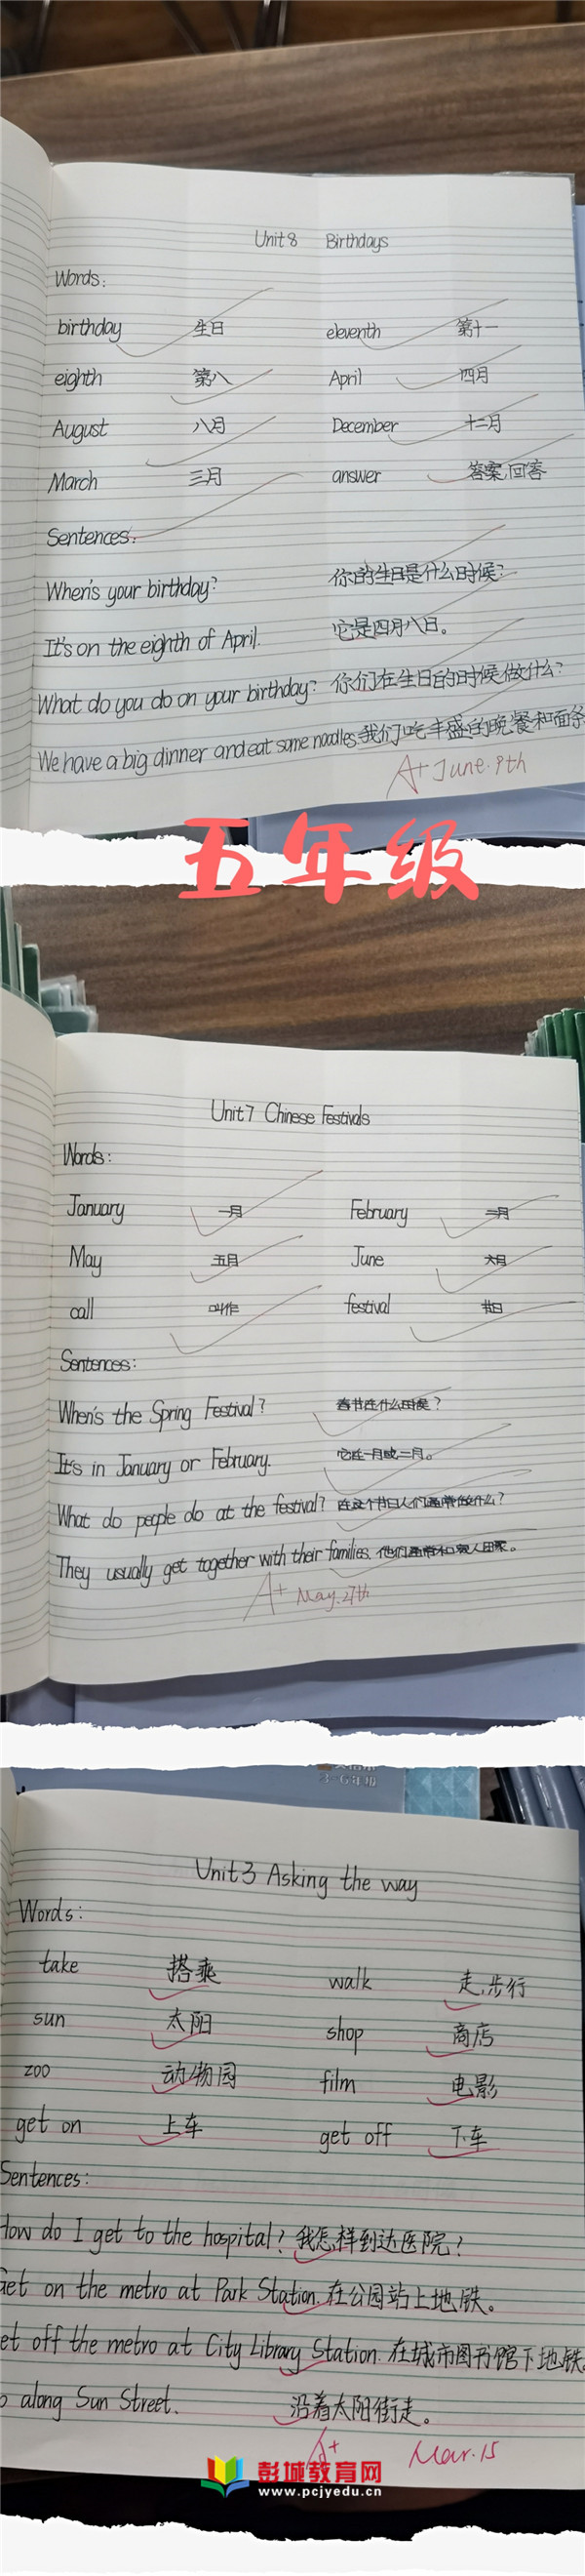 Unit 8 Birthdays
Words:
birthday 生日 eleventh 第十一
eighth 第八 April 四月
August 八月 December 十二月
March 三月 answer 答案,回答
Sentences:
When's your birthday? 你的生日是什么时候?
It's on the eighth of April. 它是四月八日。
What do you do on your birthday? 你们在生日的时候做什么?
We have a big dinner and eat some noodles. 我们吃丰盛的晚餐和面条
A+ June.9th
五年级
Unit 7 Chinese Festivals
Words:
January 一月 February 二月
May 五月 June 六月
call 叫作 festival 节日
Sentences:
When's the Spring Festival? 春节在什么时候?
It's in January or February. 它在一月或二月。
What do people do at the festival? 在这个节日人们通常做什么?
They usually get together with their families. 他们通常和家人团聚。
A+ May.27th
3-6年级
Unit 3 Asking the way
Words:
take 搭乘 walk 走,步行
sun 太阳 shop 商店
zoo 动物园 film 电影
get on 上车 get off 下车
Sentences:
How do I get to the hospital? 我怎样到达医院?
Get on the metro at Park Station. 在公园站上地铁。
et off the metro at City Library Station. 在城市图书馆下地铁
o along Sun Street. 沿着太阳街走。
A+ Mar.15
彭城教育网
www.pcjyedu.cn